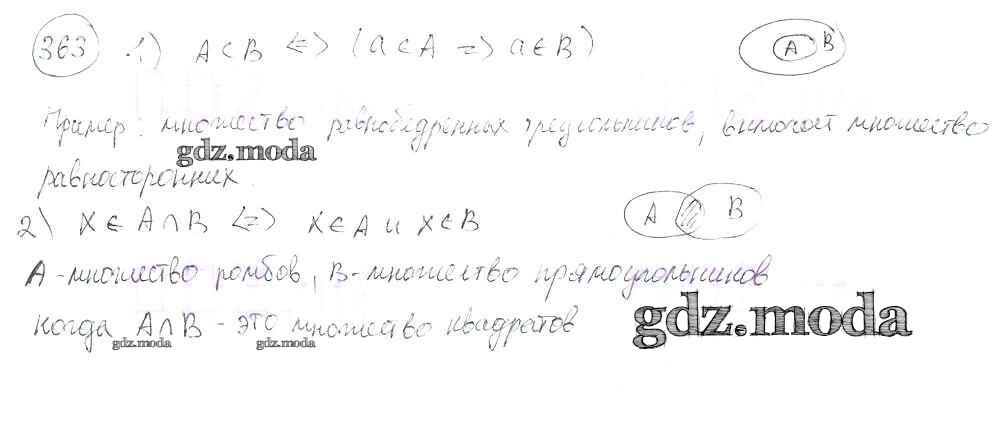 363 1) A ⊂ B <=> (a ∈ A => a ∈ B) A B
Пример: множество равнобедренных треугольников, включает множество
gdz.moda
равносторонних.
2) X ∈ A ∩ B <=> X ∈ A и X ∈ B A B
A - множество ромбов, B - множество прямоугольников
когда A ∩ B - это множество квадратов
gdz.moda
gdz.moda gdz.moda